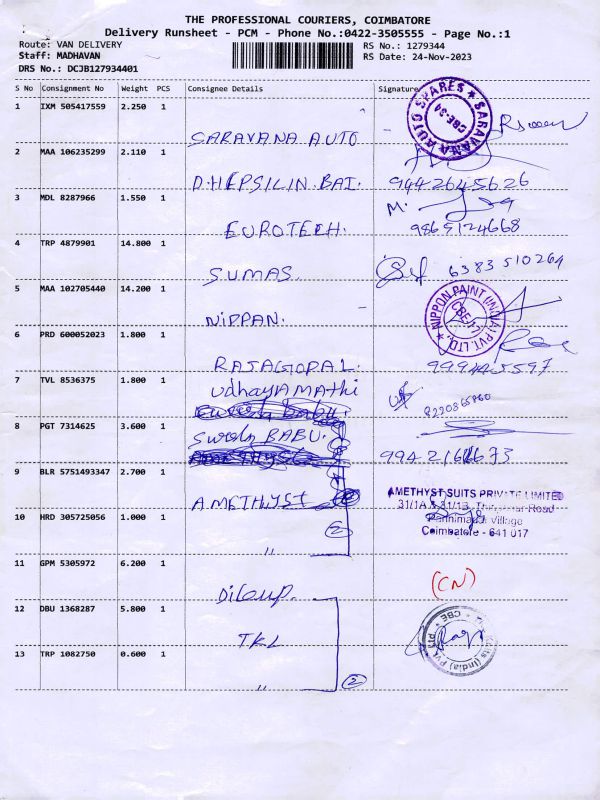 THE PROFESSIONAL COURIERS, COIMBATORE
Delivery Runsheet - PCM - Phone No.:0422-3505555 - Page No.:1
Route: VAN DELIVERY RS No.: 1279344
Staff: MADHAVAN RS Date: 24-Nov-2023
DRS No.: DCJB127934401
S No Consignment No Weight PCS Consignee Details Signature
1 IXM 505417559 2.250 1
SARAVANA AUTO SARAVANA AUTO SPARES CBE-34
2 MAA 106235299 2.110 1
D.HEPSILIN BAI. 9442645626
3 MDL 8287966 1.550 1 M.
EUROTECH. 9865124668
4 TRP 4879901 14.800 1
SUMAS. 6383510264
5 MAA 102705440 14.200 1
NIPPAN. NIPPON PAINT (INDIA) PVT. LTD.
6 PRD 600052023 1.800 1
RAJAGOPAL.
7 TVL 8536375 1.800 1 UdhayAMAthi
8220865960
8 PGT 7314625 3.600 1
BABU.
9 BLR 5751493347 2.700 1
AMETHYST AMETHYST SUITS PRIVATE LIMITED
10 HRD 305725056 1.000 1
Village
Coimbatore - 641 017
" 2
11 GPM 5305972 6.200 1
Dileep. (CN)
12 DBU 1368287 5.800 1
TKL
13 TRP 1082750 0.600 1
" 2